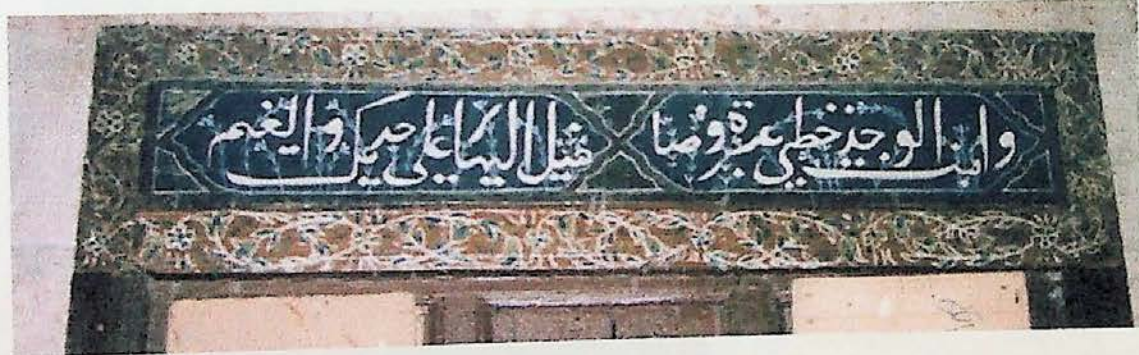 واثبت الوجد خطي عبرة وضنا مثل البهار على خديك والعنم